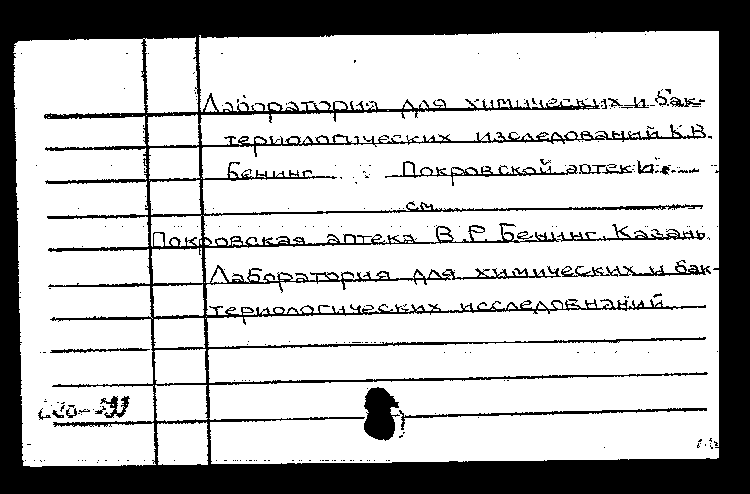 Лаборатория для химических и бак-
териологических изследований К.В.
Бенинг Покровской аптеки.
см
Покровская аптека В.Р. Бенинг. Казань
Лаборатория для химических и бак-
териологических исследовнаний